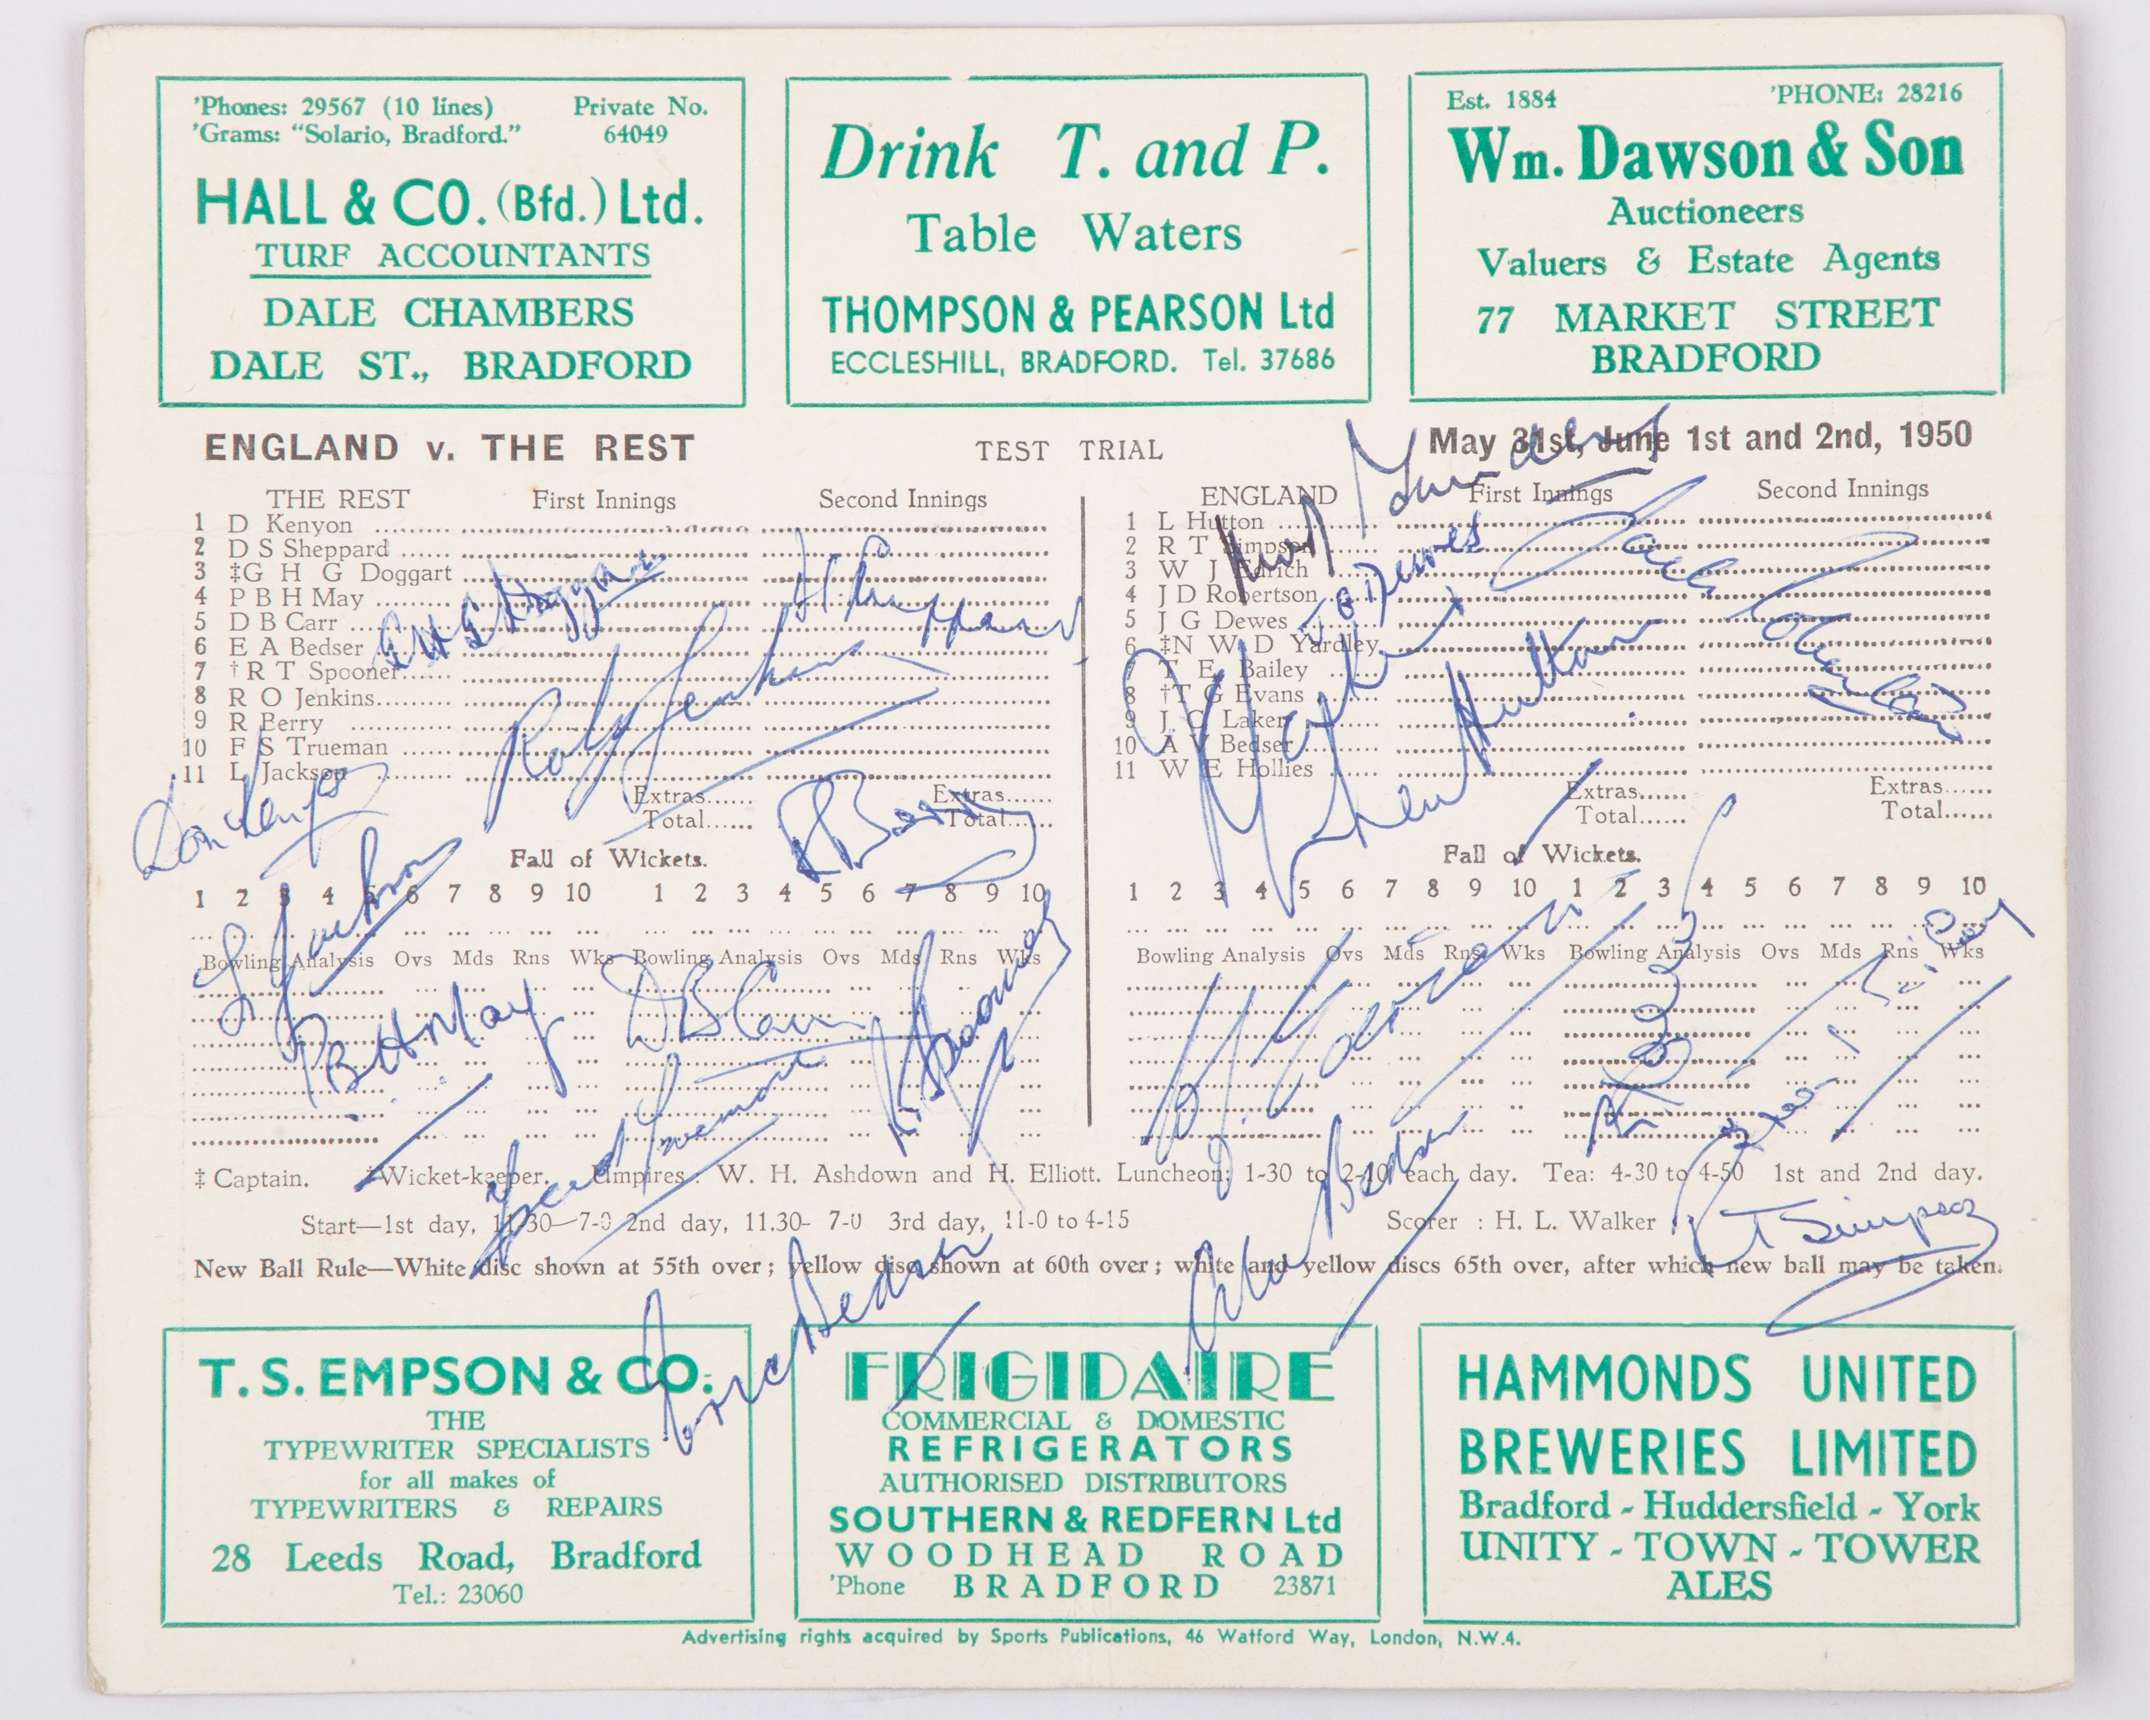 'Phones: 29567 (10 lines) Private No.
'Grams: "Solario, Bradford." 64049
HALL & CO. (Bfd.) Ltd.
TURF ACCOUNTANTS
DALE CHAMBERS
DALE ST., BRADFORD
Drink T. and P.
Table Waters
THOMPSON & PEARSON Ltd
ECCLESHILL, BRADFORD. Tel. 37686
Est. 1884 'PHONE: 28216
Wm. Dawson & Son
Auctioneers
Valuers & Estate Agents
77 MARKET STREET
BRADFORD
ENGLAND v. THE REST TEST TRIAL May 31st, June 1st and 2nd, 1950
THE REST First Innings Second Innings
1 D Kenyon
2 D S Sheppard
3 ‡G H G Doggart
4 P B H May
5 D B Carr
6 E A Bedser
7 †R T Spooner
8 R O Jenkins
9 R Berry
10 F S Trueman
11 L Jackson
Extras...... Extras......
Total...... Total......
Fall of Wickets.
1 2 3 4 5 6 7 8 9 10 1 2 3 4 5 6 7 8 9 10
Bowling Analysis Ovs Mds Rns Wks Bowling Analysis Ovs Mds Rns Wks
ENGLAND First Innings Second Innings
1 L Hutton
2 R T Simpson
3 W J Edrich
4 J D Robertson
5 J G Dewes
6 ‡N W D Yardley
7 T E Bailey
8 †T G Evans
9 J C Laker
10 A V Bedser
11 W E Hollies
Extras...... Extras......
Total...... Total......
Fall of Wickets.
1 2 3 4 5 6 7 8 9 10 1 2 3 4 5 6 7 8 9 10
Bowling Analysis Ovs Mds Rns Wks Bowling Analysis Ovs Mds Rns Wks
Don Kenyon
Ralf Jenkins
R Berry
L Jackson
P.B.H. May
D B Carr
Fred Trueman
Eric Bedser
J G Dewes
Len Hutton
Alec Bedser
R T Simpson
‡ Captain. †Wicket-keeper. Umpires : W. H. Ashdown and H. Elliott. Luncheon: 1-30 to 2-10 each day. Tea: 4-30 to 4-50 1st and 2nd day.
Start—1st day, 11-30—7-0 2nd day, 11.30- 7-0 3rd day, 11-0 to 4-15 Scorer : H. L. Walker
New Ball Rule—White disc shown at 55th over; yellow disc shown at 60th over; white and yellow discs 65th over, after which new ball may be taken.
T. S. EMPSON & CO.
THE
TYPEWRITER SPECIALISTS
for all makes of
TYPEWRITERS & REPAIRS
28 Leeds Road, Bradford
Tel.: 23060
FRIGIDAIRE
COMMERCIAL & DOMESTIC
REFRIGERATORS
AUTHORISED DISTRIBUTORS
SOUTHERN & REDFERN Ltd
WOODHEAD ROAD
'Phone BRADFORD 23871
HAMMONDS UNITED
BREWERIES LIMITED
Bradford - Huddersfield - York
UNITY - TOWN - TOWER
ALES
Advertising rights acquired by Sports Publications, 46 Watford Way, London, N.W.4.